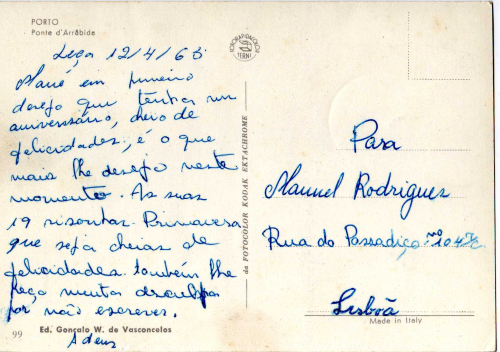 PORTO
Ponte d'Arrábida
Leça 12/4/65
Mané em primeiro
desejo que tenhas um
aniversário, cheio de
felicidades, é o que
mais lhe desejo neste
momento. As suas
19 risonhas Primavera
que seja cheias de
felicidades também lhe
peço muitas desculpas
por não escrever.
99
Ed. Gonçalo W. de Vasconcelos
Adeus
FOTORAPIDACOLOR
TERNI
da FOTOCOLOR KODAK EKTACHROME
Para
Manuel Rodrigues
Rua do Passadiço nº 104
Lisbõa
Made in Italy